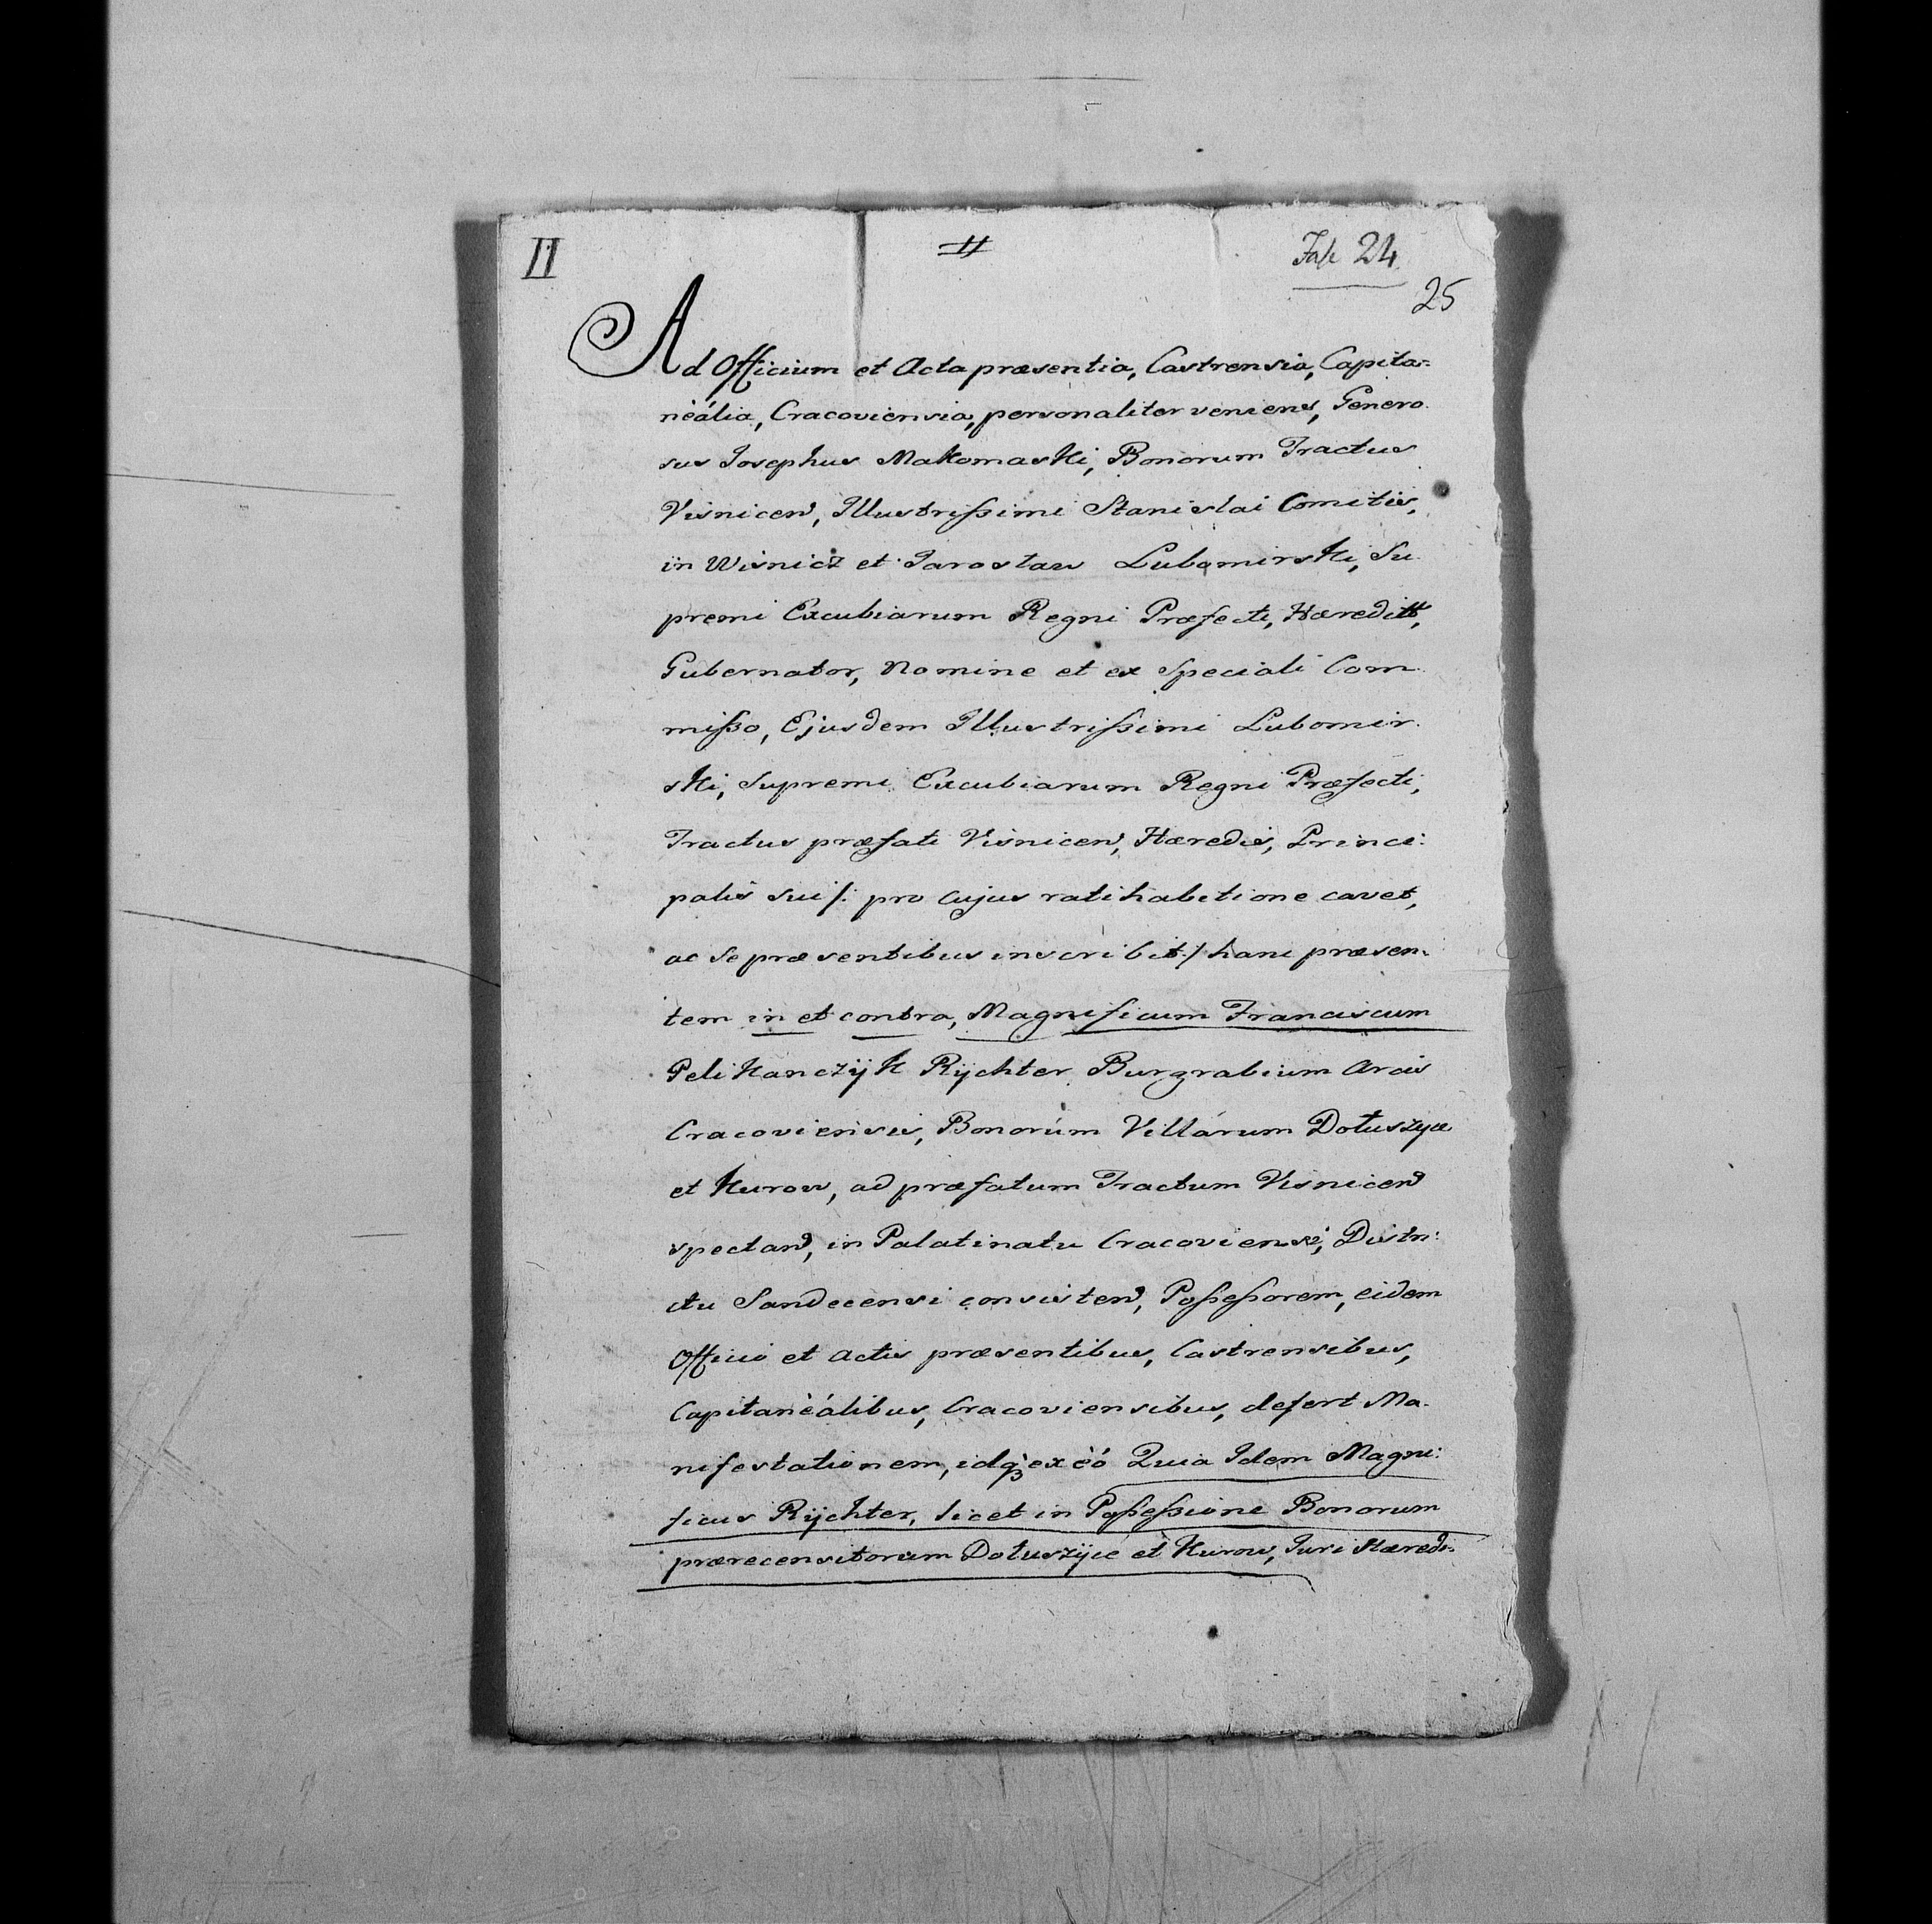 II
Fasc 24
25
Ad Officium et Acta præsentia, Castrensia, Capita-
nèália, Cracoviensia, personaliter veniens, Genero
sus Josephus Makomaski, Bonorum Tractus
Visnicen, Illustrißimi Stanislai Comitis,
in Wisnicz et Jarosław Lubomirski, Su
premi Excubiarum Regni Præfecti, Hæredit,
Gubernator, Nomine et ex Speciali Com
mißo, Ejusdem Illustrißimi Lubomir
ski, Supremi Excubiarum Regni Præfecti,
Tractus præfati Visnicen, Hæredis, Princi:
palis sui /: pro cujus ratihabitione cavet,
ac se præsentibus inscribit :/ hanc præsen:
tem in et contra, Magnificum Franciscum
Pelikanczÿk Rÿchter Burgrabium Arcis
Cracoviensis, Bonorúm Villárum Dołuszyce
et Kurow, ad præfatum Tractum Visnicen
spectan, in Palatinatu Cracoviensi, Distri:
ctu Sandecensi consisten, Poßeßorem, eidem
Officio et Actis præsentibus, Castrensibus,
Capitanèálibus, Cracoviensibus, defert Ma
nifestationem, idqꝫ ex èó Quia Idem Magni:
ficus Rÿchter, licet in Poßeßione Bonorum
prærecensitorum Dołuszÿce et Kurow, Juri Hæredi: